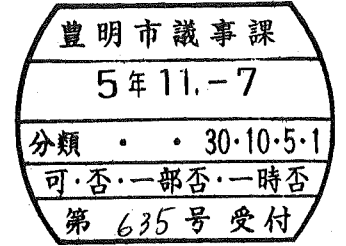 豊明市議事課
5年11.-7
分類 ・ ・ 30・10・5・1
可・否・一部否・一時否
第 635号 受付